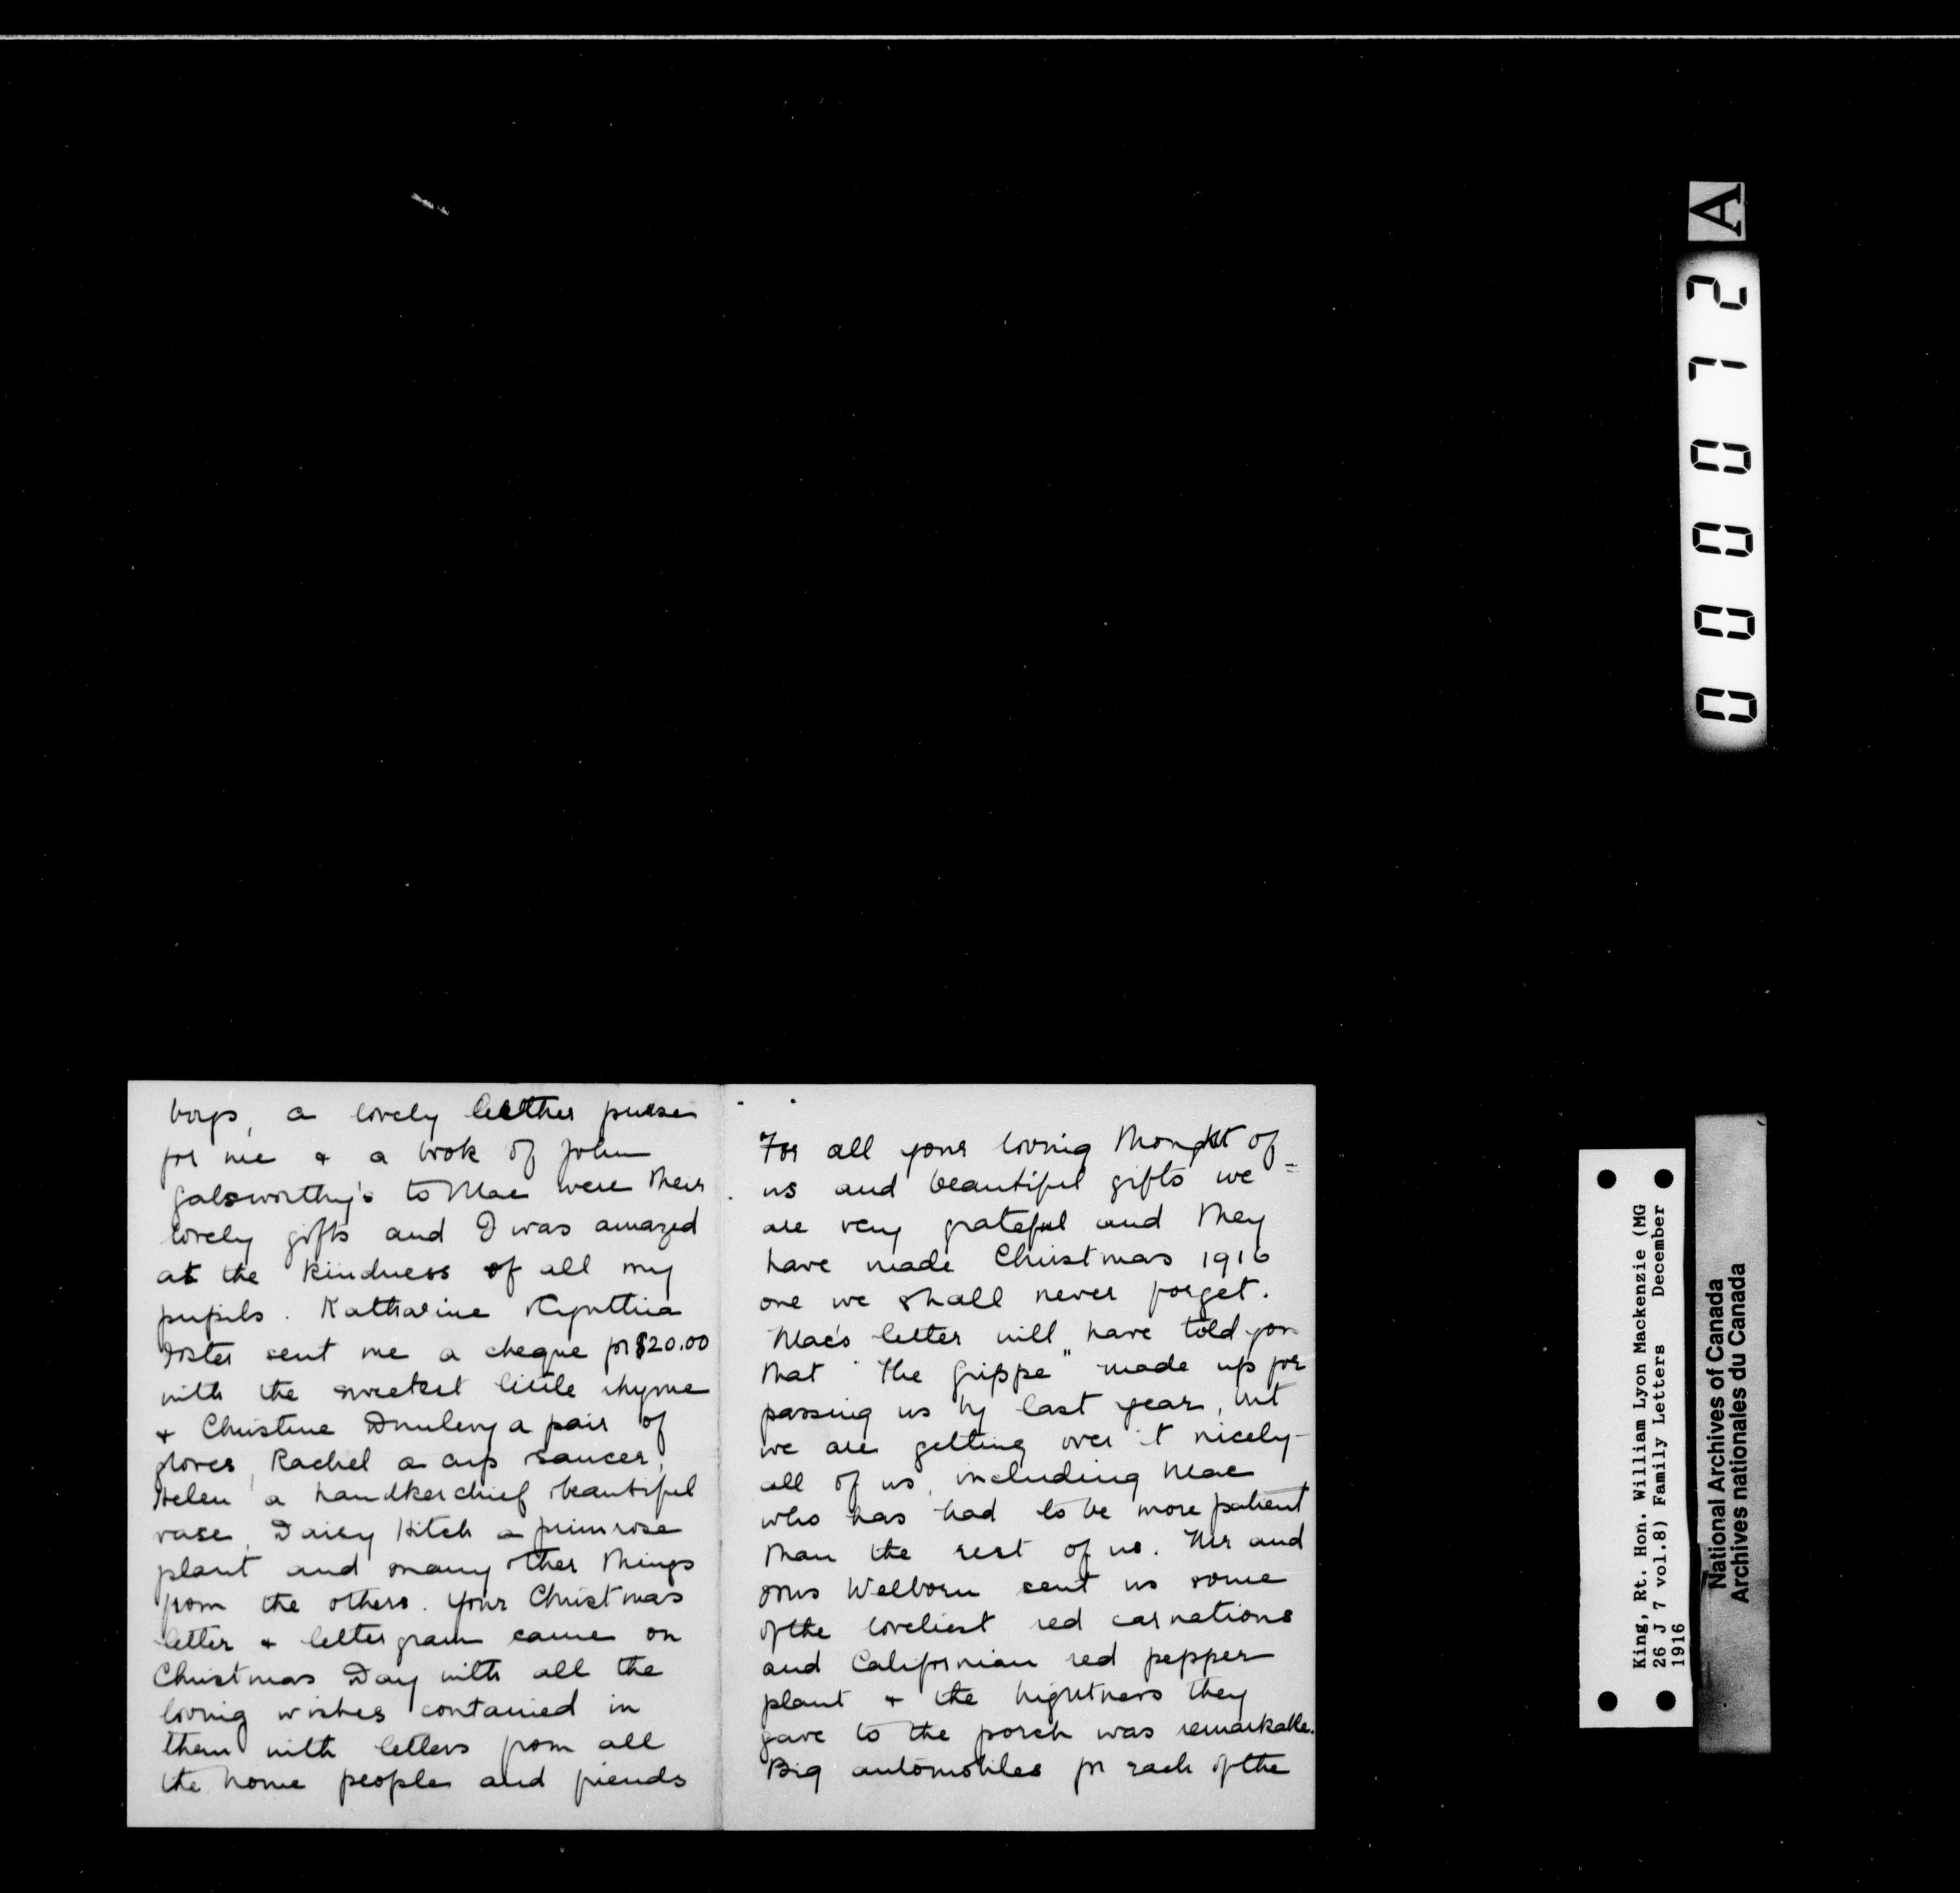 boys, a lovely leather purse
for me & a book of John
Galsworthy's to Mae were their
lovely gifts and I was amazed
at the kindness of all my
pupils. Katharine Kynthia
Foster sent me a cheque for $20.00
with the sweetest little rhyme
& Christine a pair of
gloves, Rachel a cup saucer,
Helen a handkerchief beautiful
vase, Daisy Hitch a primrose
plant and many other things
from the others. Your Christmas
letter & lettergram came on
Christmas Day with all the
loving wishes contained in
them with letters from all
the home people and friends
For all your loving thought of
us and beautiful gifts we
are very grateful and they
have made Christmas 1916
one we shall never forget.
Mae's letter will have told you
that "the grippe" made up for
passing us by last year, but
we are getting over it nicely
all of us, including Mae
who has had to be more patient
than the rest of us. Mr and
Mrs Welborn sent us some
of the loveliest red carnations
and Californian red pepper
plant & the brightness they
gave to the porch was remarkable.
Big automobiles for each of the
A
000012
King, Rt. Hon. William Lyon Mackenzie (MG
26 J 7 vol.8) Family Letters December
1916
National Archives of Canada
Archives nationales du Canada